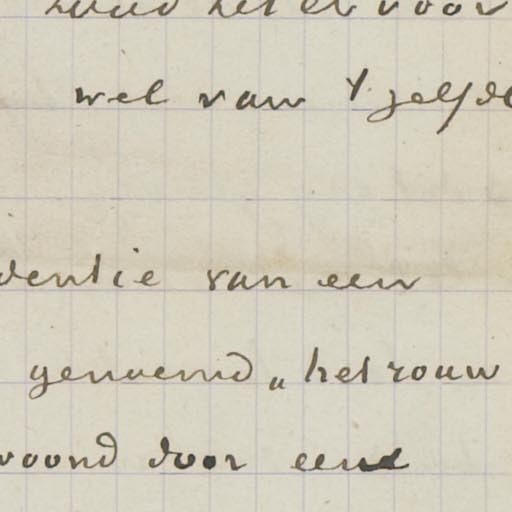 houd het er voor
wel van 't zelfde
dentie van een
genoemd „het rouw
woond door eene